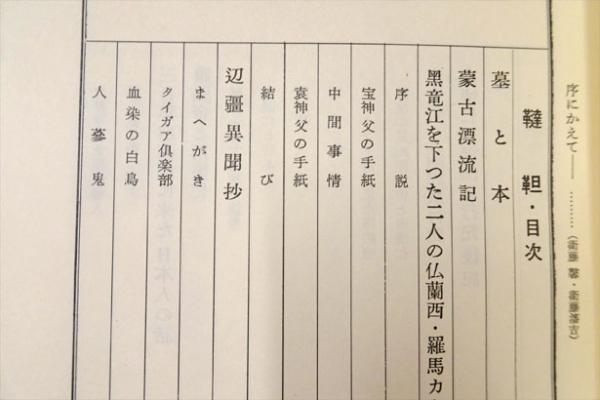 序にかえて――………(衛藤 馨・衛藤瀋吉)
韃靼・目次
墓と本
蒙古漂流記
黒竜江を下つた二人の仏蘭西・羅馬カ
序説
宝神父の手紙
中間事情
袁神父の手紙
結び
辺疆異聞抄
まへがき
タイガア倶楽部
血染の白鳥
人蔘鬼